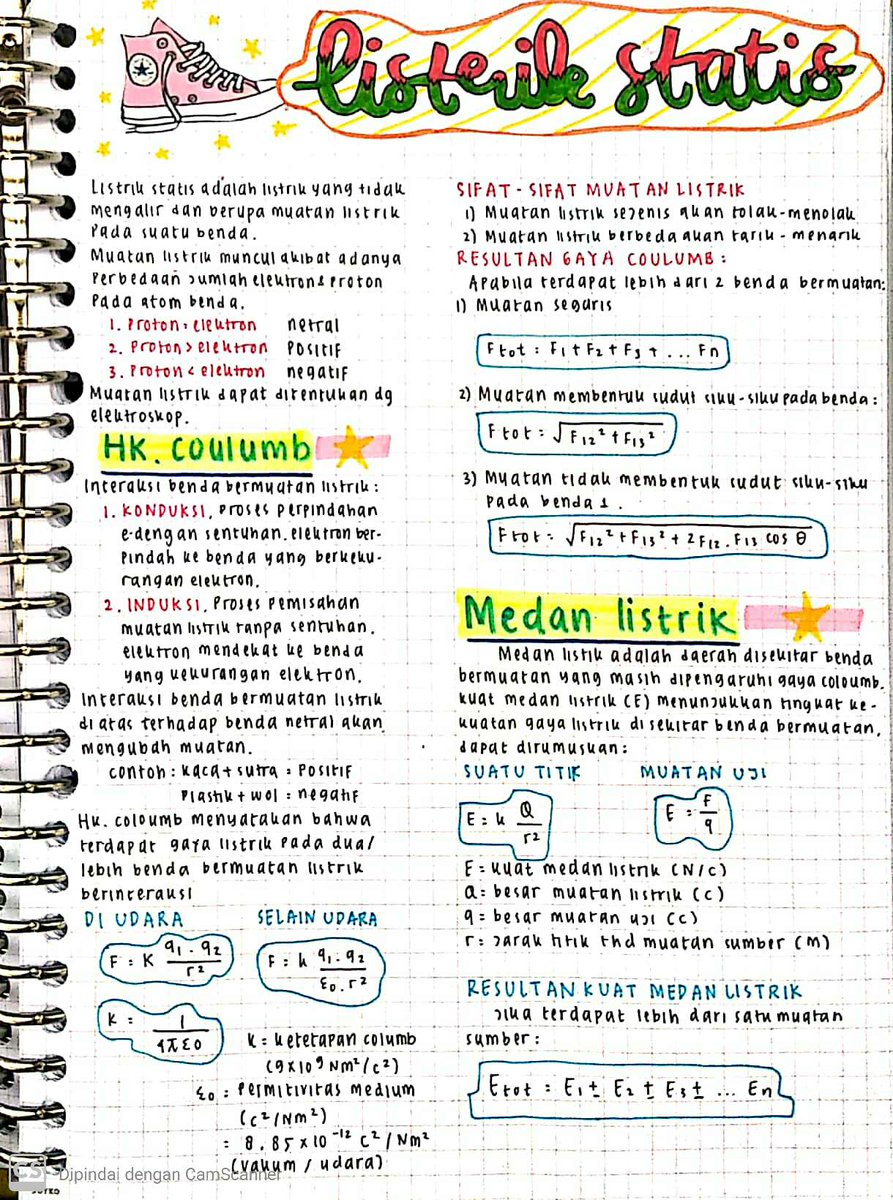 listrik statis
Listrik statis adalah listrik yang tidak
mengalir dan berupa muatan listrik
pada suatu benda.
Muatan listrik muncul akibat adanya
perbedaan jumlah elektron & proton
pada atom benda.
1. Proton = elektron netral
2. Proton > elektron positif
3. Proton < elektron negatif
Muatan listrik dapat ditentukan dg
elektroskop.
Hk. coulumb
Interaksi benda bermuatan listrik :
1. KONDUKSI, proses perpindahan
e- dengan sentuhan. elektron ber-
pindah ke benda yang berkeku-
rangan elektron.
2. INDUKSI, proses pemisahan
muatan listrik tanpa sentuhan.
elektron mendekat ke benda
yang kekurangan elektron.
Interaksi benda bermuatan listrik
di atas terhadap benda netral akan
mengubah muatan.
contoh : kaca + sutra = positif
plastik + wol = negatif
Hk. coloumb menyatakan bahwa
terdapat gaya listrik pada dua/
lebih benda bermuatan listrik
berinteraksi
DI UDARA SELAIN UDARA
F = K q1 . q2 / r²
F = k q1 . q2 / ε0 . r²
K = 1 / 4πε0
K = ketetapan columb
(9x10⁹ Nm²/c²)
ε0 = permitivitas medium
(c²/Nm²)
= 8,85 x 10⁻¹² C²/Nm²
(vakum / udara)
SIFAT - SIFAT MUATAN LISTRIK
1) Muatan listrik sejenis akan tolak-menolak
2) Muatan listrik berbeda akan tarik - menarik
RESULTAN GAYA COULUMB :
Apabila terdapat lebih dari 2 benda bermuatan:
1) Muatan segaris
Ftot = F1 + F2 + F3 + ... Fn
2) Muatan membentuk sudut siku-siku pada benda :
Ftot = √F12² + F13²
3) Muatan tidak membentuk sudut siku-siku
pada benda 1.
Ftot = √F12² + F13² + 2F12 . F13 cos θ
Medan listrik
Medan listik adalah daerah disekitar benda
bermuatan yang masih dipengaruhi gaya coloumb.
kuat medan listrik (E) menunjukkan tingkat ke-
kuatan gaya listrik di sekitar benda bermuatan,
dapat dirumuskan :
SUATU TITIK MUATAN UJI
E = k Q / r²
E = F / q
E = kuat medan listrik (N/c)
Q = besar muatan listrik (c)
q = besar muatan uji (c)
r = jarak titik thd muatan sumber (M)
RESULTAN KUAT MEDAN LISTRIK
Jika terdapat lebih dari satu muatan
sumber :
Etot = E1 ± E2 ± E3 ± ... En
CS Dipindai dengan CamScanner